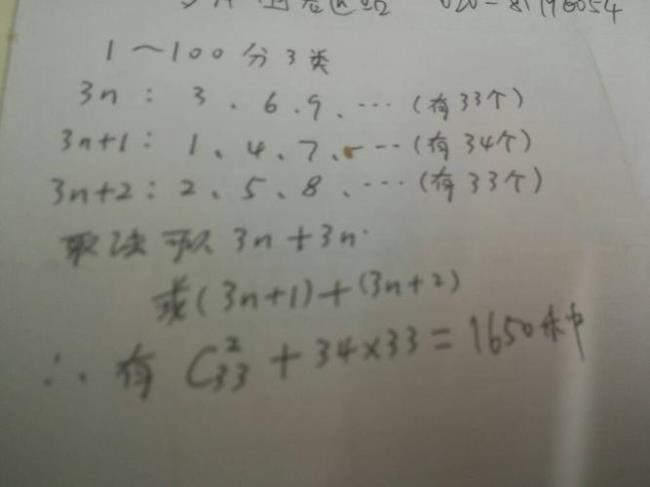 020-81196054
1～100分3类
3n: 3、6、9、…(有33个)
3n+1: 1、4、7、…(有34个)
3n+2: 2、5、8、…(有33个)
取法可以 3n+3n
或(3n+1)+(3n+2)
∴有 C²₃₃+34×33=1650种